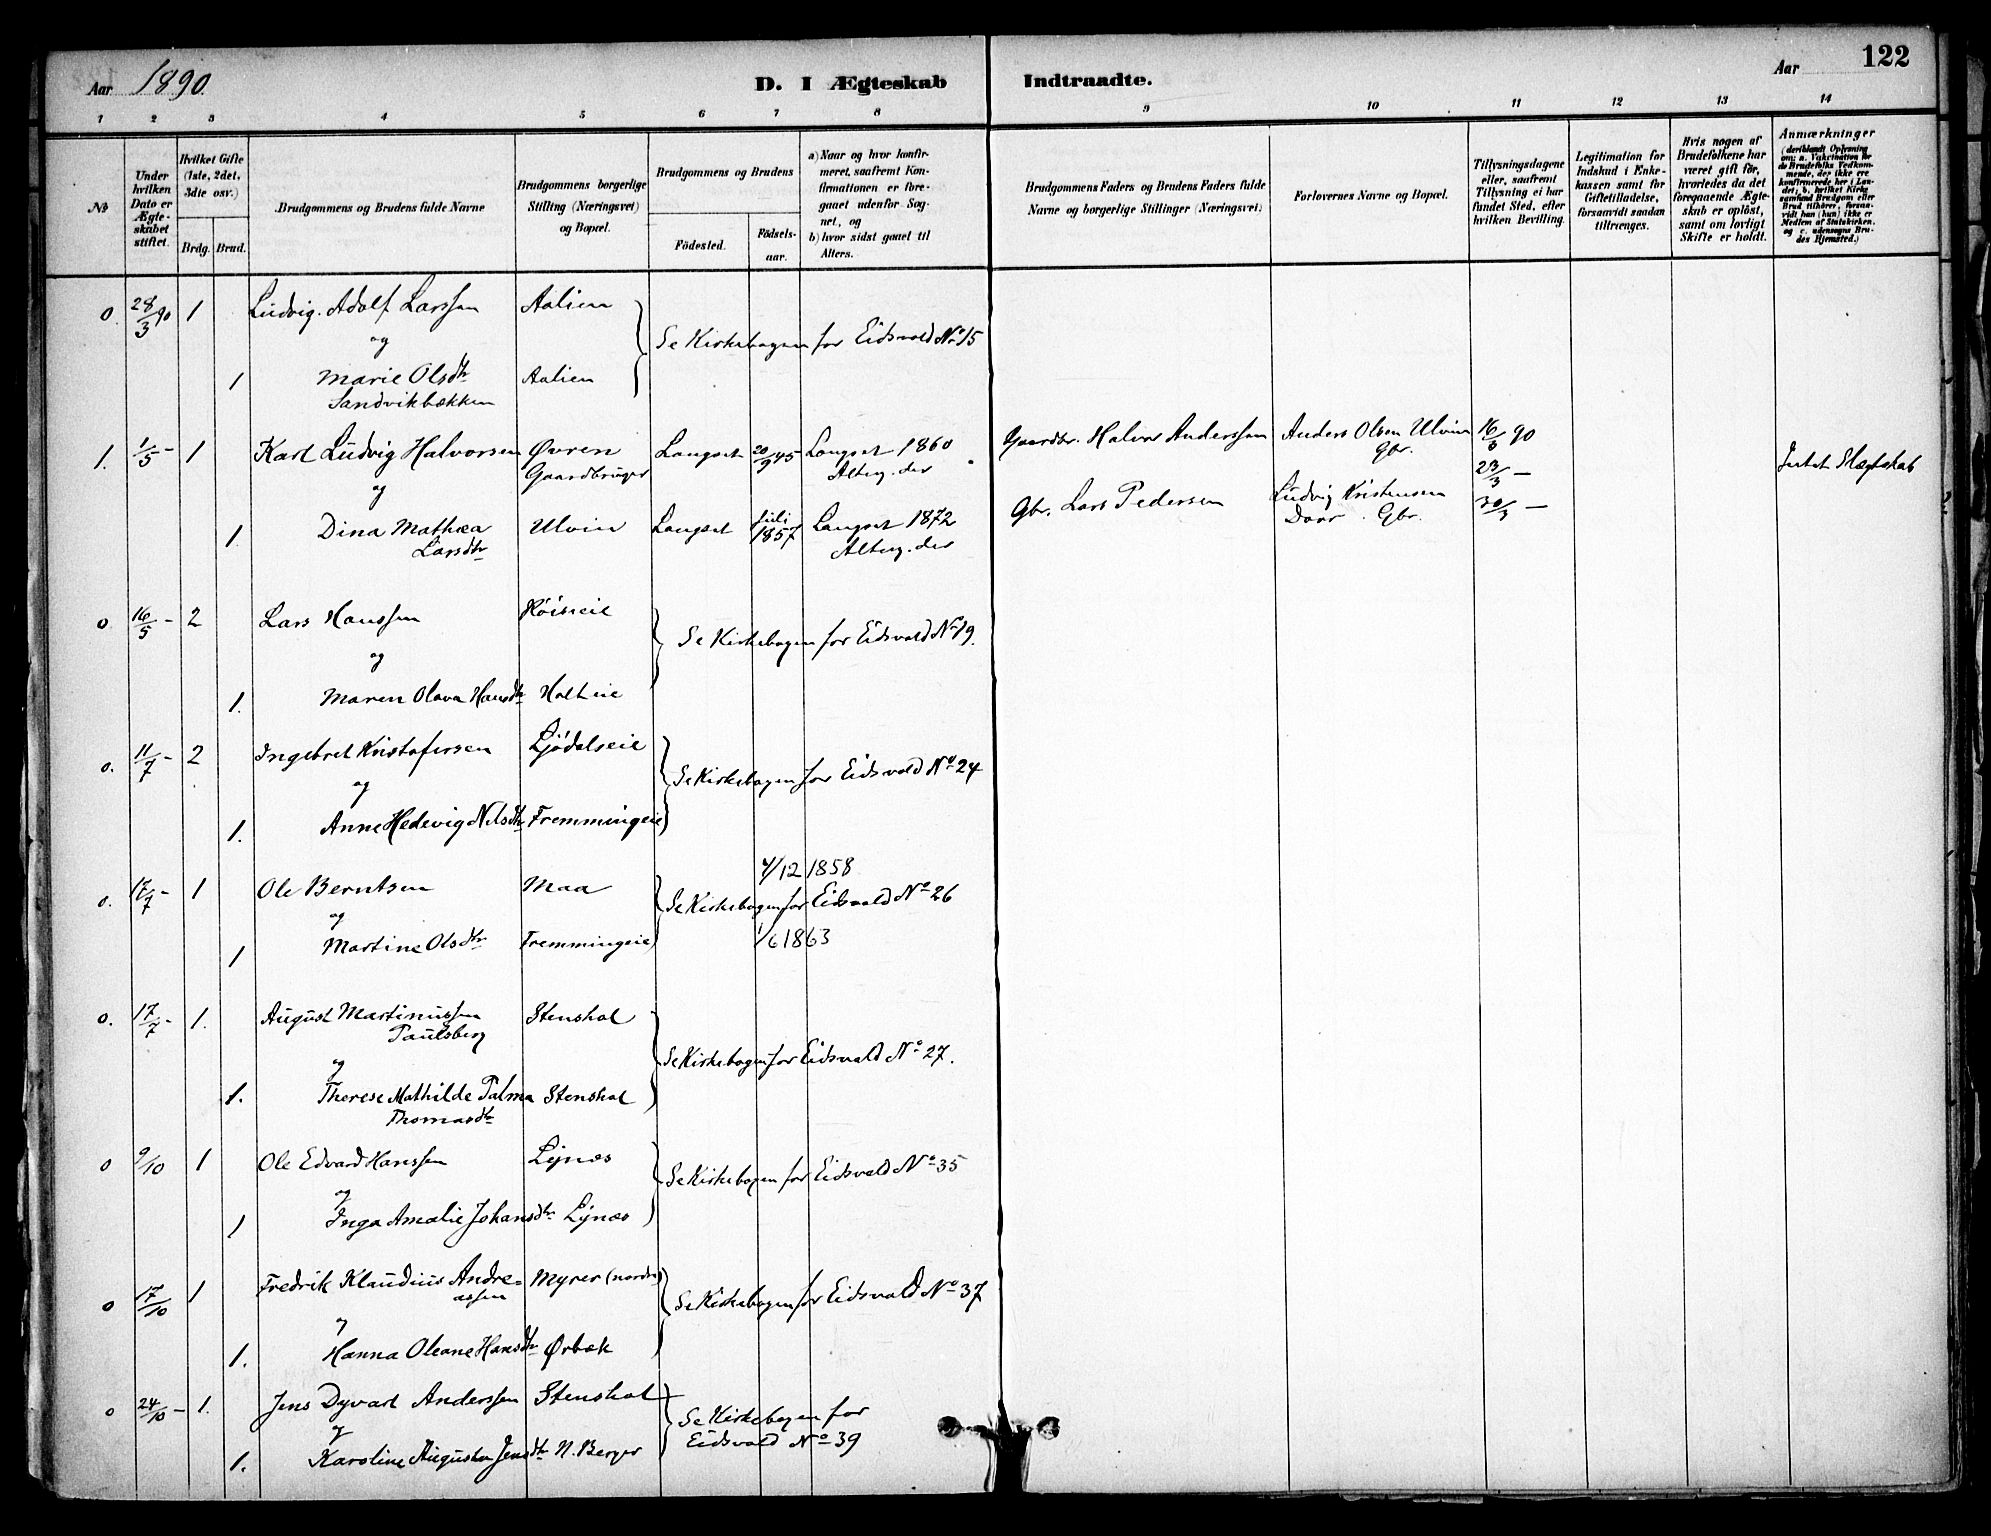 Aar 1890.
D. I Ægteskab Indtraadte.
Aar
122
1 2 3 4 5 6 7 8 9 10 11 12 13 14
№
Under hvilken Dato er Ægteskabet stiftet.
Hvilket Gifte (1ste, 2det, 3die osv.)
Brdg. Brud.
Brudgommens og Brudens fulde Navne
Brudgommens borgerlige Stilling (Næringsvei) og Bopæl.
Brudgommens og Brudens
Födested.
Födsels-aar.
a) Naar og hvor konfirmeret, saafremt Konfirmationen er foregaaet udenfor Sognet, og
b) hvor sidst gaaet til Alters.
Brudgommens Faders og Brudens Faders fulde Navne og borgerlige Stillinger (Næringsvei)
Forlovernes Navne og Bopæl.
Tillysningsdagene eller, saafremt Tillysning ei har fundet Sted, efter hvilken Bevilling.
Legitimation for Indskud i Enkekassen samt for Giftetilladelse, forsaavidt saadan tiltrænges.
Hvis nogen af Brudefolkene har været gift för, hvorledes da det foregaaende Ægteskab er oplöst, samt om lovligt Skifte er holdt.
Anmærkninger
(deriblandt Oplysning om: a. Vakcination for de Brudefolks Vedkommende, der ikke ere konfirmerede her i Landet; b. hvilket Kirkesamfund Brudgom eller Brud tilhörer, forsaavidt han (hun) ikke er Medlem af Statskirken, og c. udensogns Brudes Hjemsted.)
0. 28/3 90 1 Ludvig Adolf Larssen Aalien
og
Se Kirkebogen for Eidsvold No 15
1 Marie Olsdtr Aalien
Sandvikbækken
1. 1/5 – 1 Karl Ludvig Halvorsen Øvren Langset 20/9 45 Langset 1860 Gaardbr. Halvor Anderssen Anders Olsen Ulvin 16/3 90
Gaardbruger Alterg. der Gbr. 23/3 – Intet Slægtskab
og
Gbr. Lars Pedersen Ludvig Kristensen 30/3 –
1. Dina Mathea Ulvin Langset Juli 1857 Langset 1872 Gbr.
Larsdtr Alterg. der
0 16/5 – 2 Lars Hanssen Höiseie
og
Se Kirkebogen for Eidsvold No 19.
1. Maren Olava Hansdtr Holteie
0. 11/7 – 2 Ingebret Kristofersen Ljödalseie
og
Se Kirkebogen for Eidsvold No 24
1. Anne Hedevig Nilsdtr Fremmingeie
4/12 1858
0. 17/7 – 1 Ole Berntsen Maa
og
Se Kirkebogen for Eidsvold No 26
1 Martine Olsdtr Fremmingeie 1/6 1863
0. 17/7 – 1. August Martinussen Stenshol
Paulsberg
og
Se Kirkebogen for Eidsvold No 27.
1. Therese Mathilde Palma Stenshol
Thomasdtr
0 9/10 1 Ole Edvard Hanssen Lynæs
og
Se Kirkebogen for Eidsvold No 35
1 Inga Amalie Johansdtr Lynæs
0 17/10 1 Fredrik Klaudius Andreassen Myrer (nordre)
og
Se Kirkebogen for Eidsvold No 37
1. Hanna Oleane Hansdtr Ørbæk
0 24/10 – 1. Jens Dyvart Anderssen Stenshol
og
Se Kirkebogen for
Eidsvold No 39
1. Karoline Augusta Jensdtr N. Berger